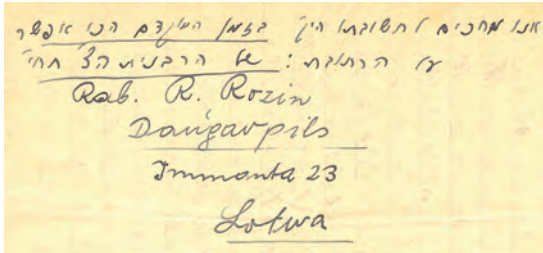 אנו מחכים לתשובתו הק' בזמן המוקדם הכי אפשר
על הכתובת: של הרבנית הצ' תחי'
Rab. R. Rozin
Daugavpils
Immanta 23
Lotwa